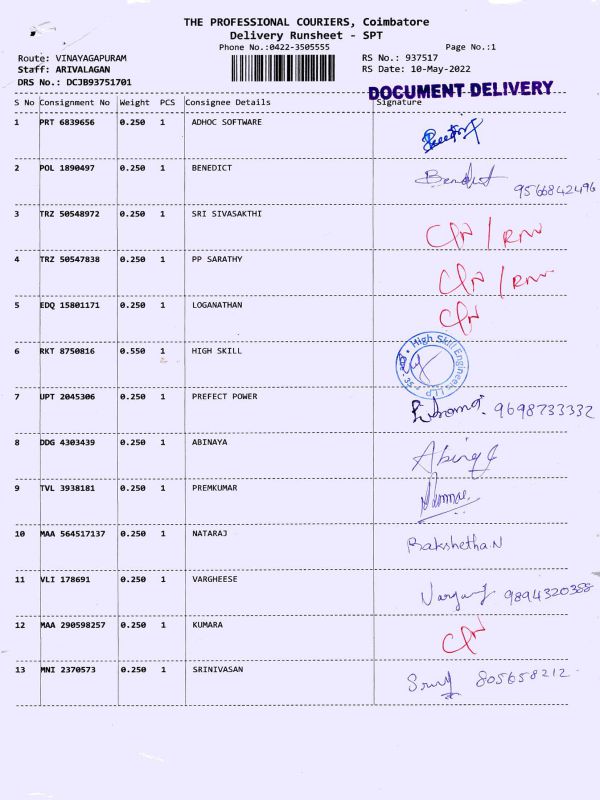 THE PROFESSIONAL COURIERS, Coimbatore
Delivery Runsheet - SPT
Phone No.:0422-3505555 Page No.:1
Route: VINAYAGAPURAM RS No.: 937517
Staff: ARIVALAGAN RS Date: 10-May-2022
DRS No.: DCJB93751701
DOCUMENT DELIVERY
S No Consignment No Weight PCS Consignee Details Signature
1 PRT 6839656 0.250 1 ADHOC SOFTWARE
2 POL 1890497 0.250 1 BENEDICT Benedict 9566842496
3 TRZ 50548972 0.250 1 SRI SIVASAKTHI
4 TRZ 50547838 0.250 1 PP SARATHY
5 EDQ 15801171 0.250 1 LOGANATHAN
6 RKT 8750816 0.550 1 HIGH SKILL High Skill Engineers LLP
7 UPT 2045306 0.250 1 PREFECT POWER 9698733332
8 DDG 4303439 0.250 1 ABINAYA
9 TVL 3938181 0.250 1 PREMKUMAR
10 MAA 564517137 0.250 1 NATARAJ Bakshetha.N
11 VLI 178691 0.250 1 VARGHEESE 9894320388
12 MAA 290598257 0.250 1 KUMARA
13 MNI 2370573 0.250 1 SRINIVASAN 805658212